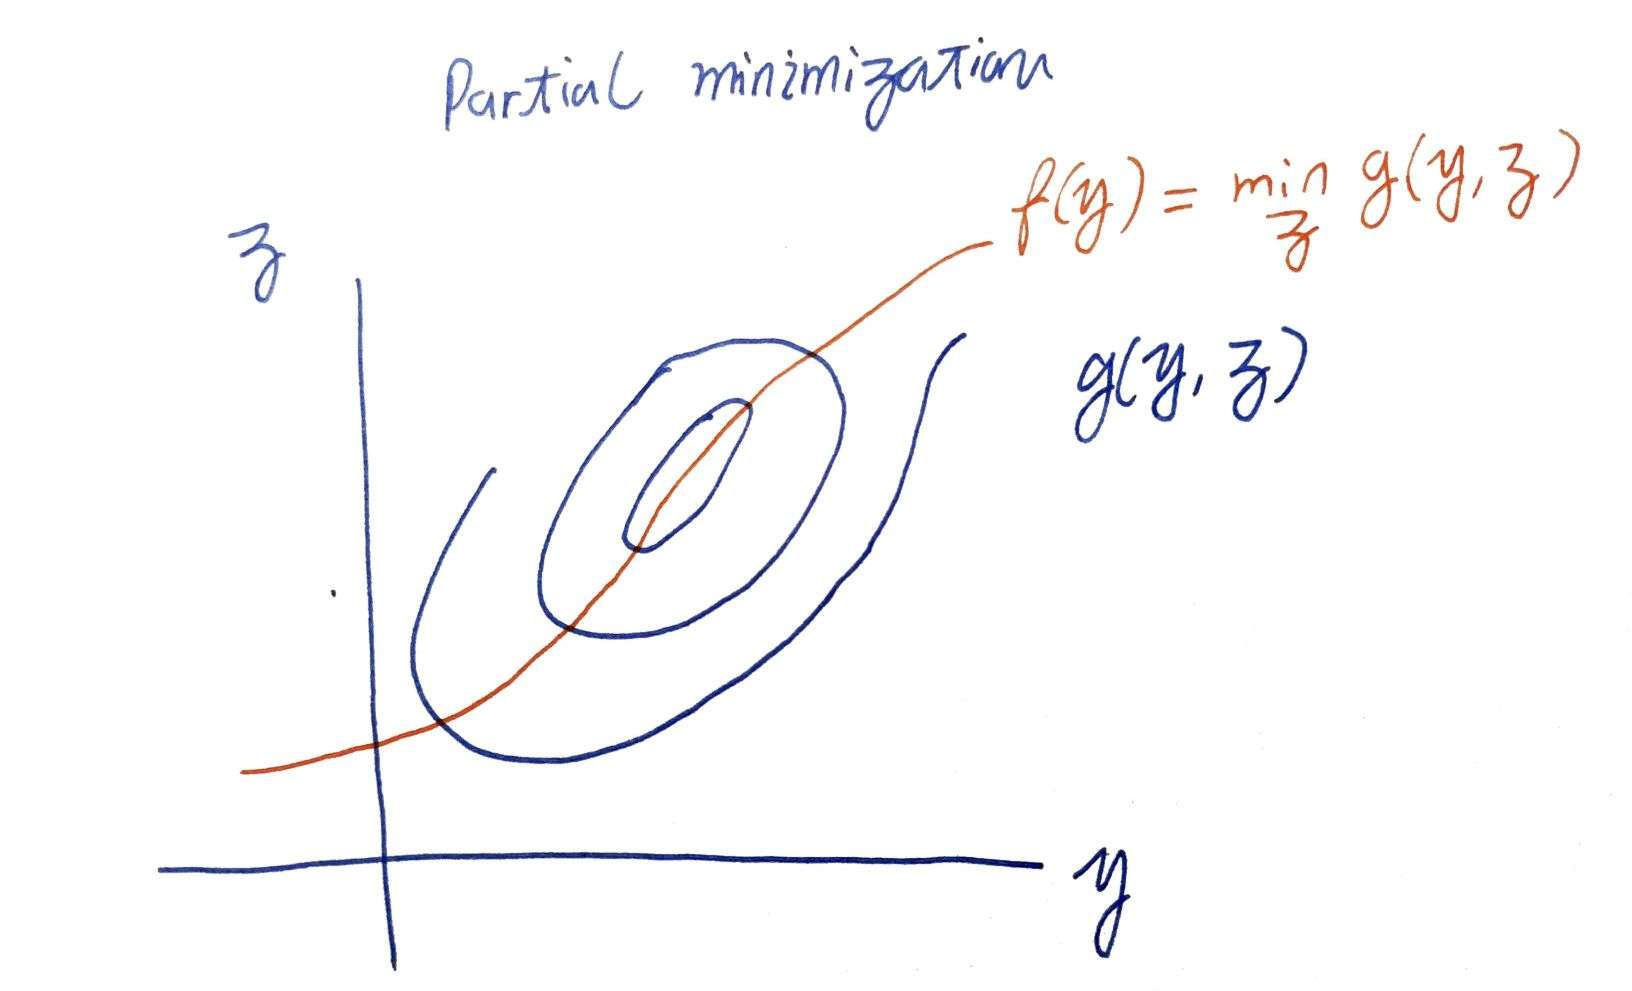 Partial minimization
f(y) = min g(y, z)
z
z
g(y, z)
y